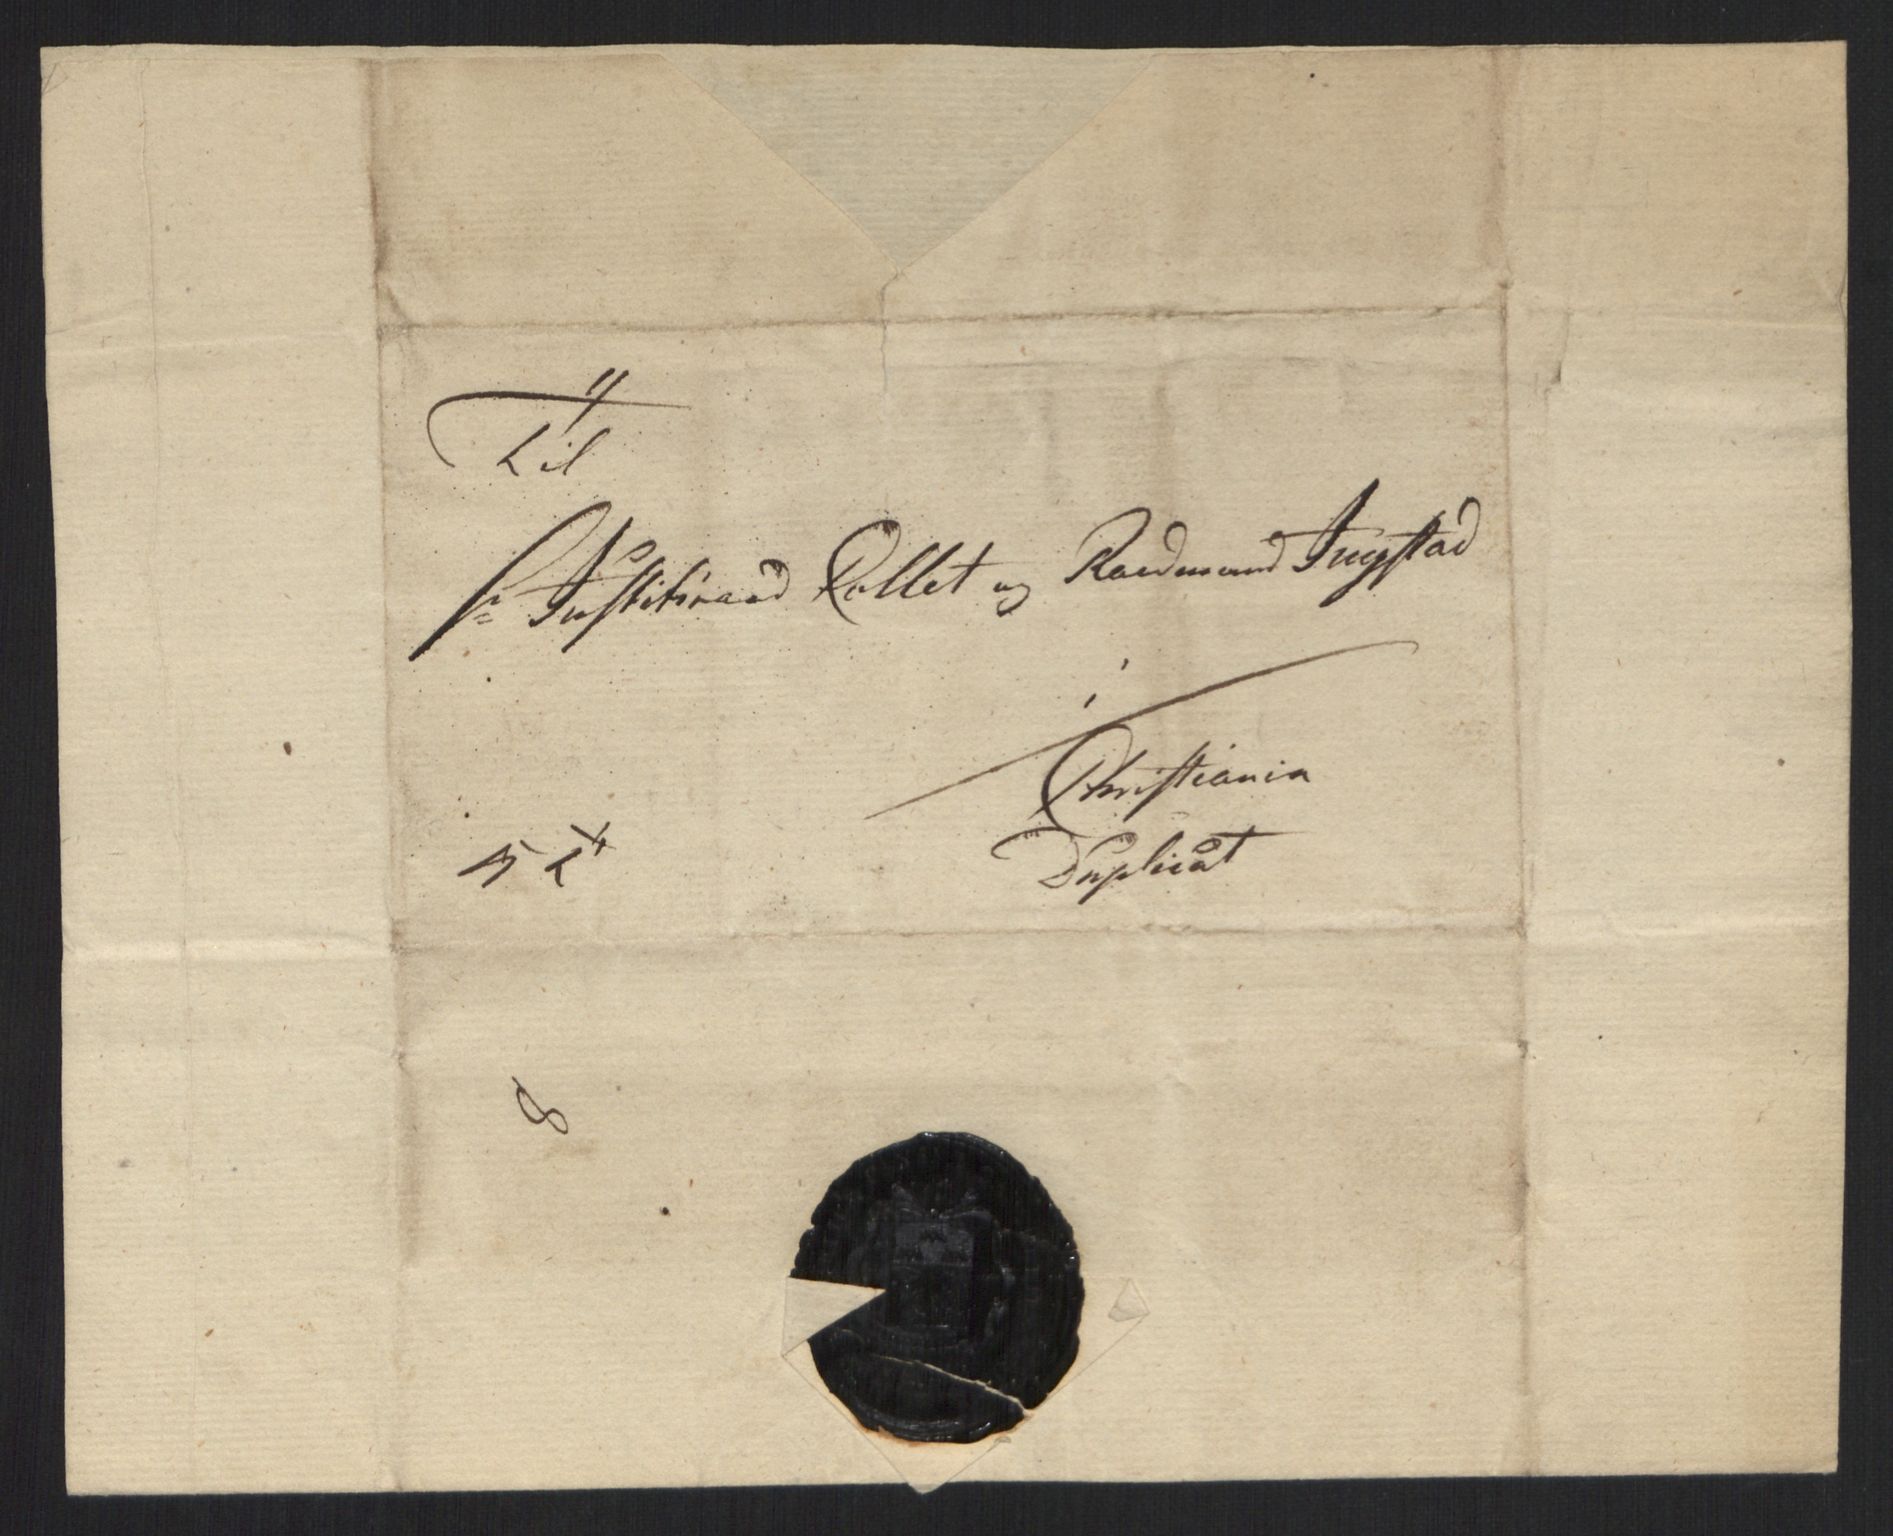 Til
Hr Justitsraad Collet og Raadmand Ingstad
i
Christiania
Duplicat
8